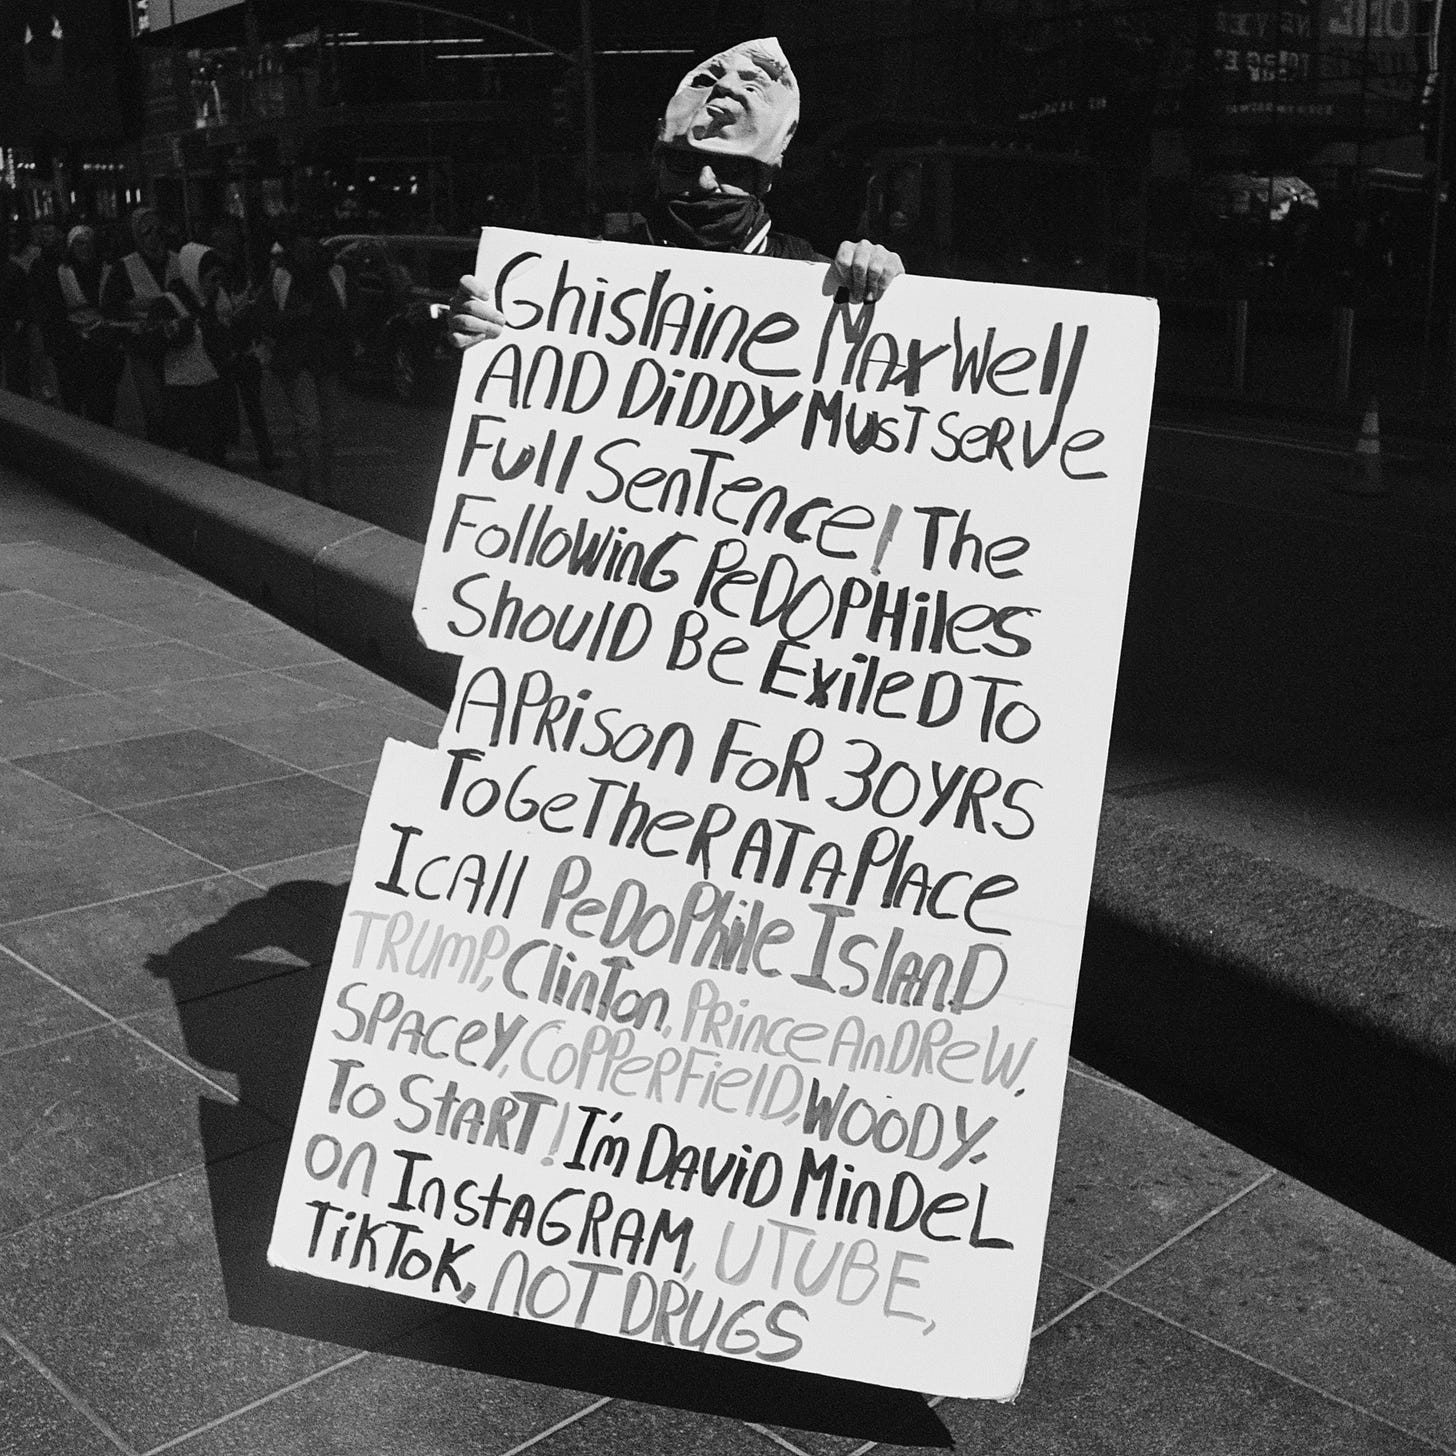 GhislAine MaxWell
AND DiDDY MUST SeRVe
Full SenTence! The
FolloWinG PeDOPHiles
ShoulD Be ExileD To
A PRison FoR 30 YRS
ToGeTheR AT A PlAce
I cAll PeDoPhile IslAnD
TRUmP, ClinTon, PRince AnDReW,
SPAceY, CoPPeRFielD, WOODY.
To StARt! I'm DAviD MinDeL
on InstAGRAM, UTUBE,
TiKToK, NOT DRUGS